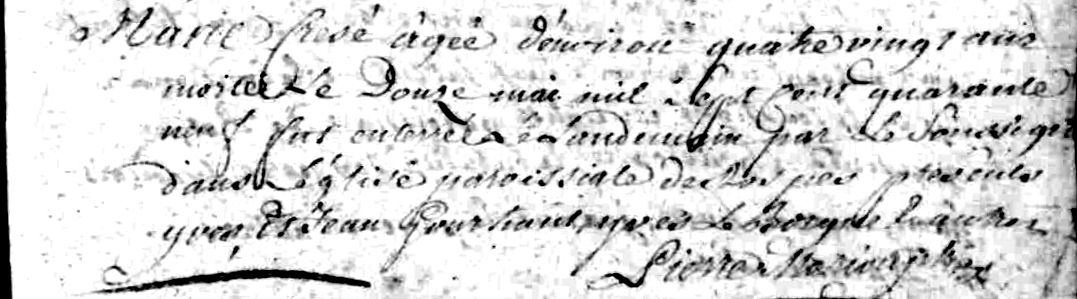 Marie Cresé âgée d'environ quatre vingt ans
morte le Douze mai mil sept cent quarante
neuf fut enterrée le landemain par le soussigné
dans l'église paroissiale de Rospez presents
yvon, et Jean Gourhant, yves Le Borgne & autres
Pierre